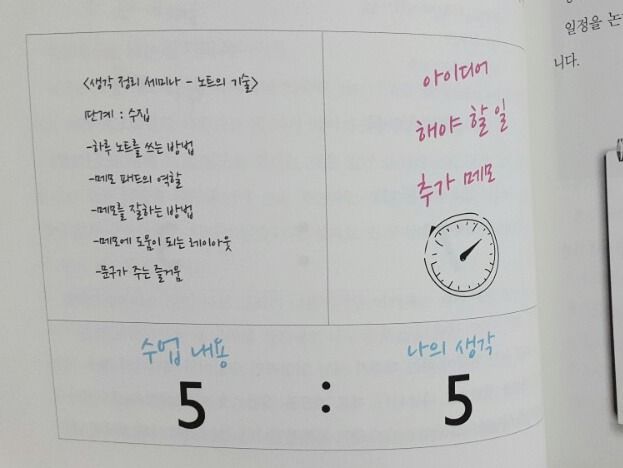 <생각 정리 세미나 - 노트의 기술>
단계 : 수집
-하루 노트를 쓰는 방법
-메모 패드의 역할
-메모를 잘하는 방법
-메모에 도움이 되는 레이아웃
-문구가 주는 즐거움
아이디어
해야 할 일
추가 메모
수업 내용
나의 생각
5 : 5
일정을 논
니다.